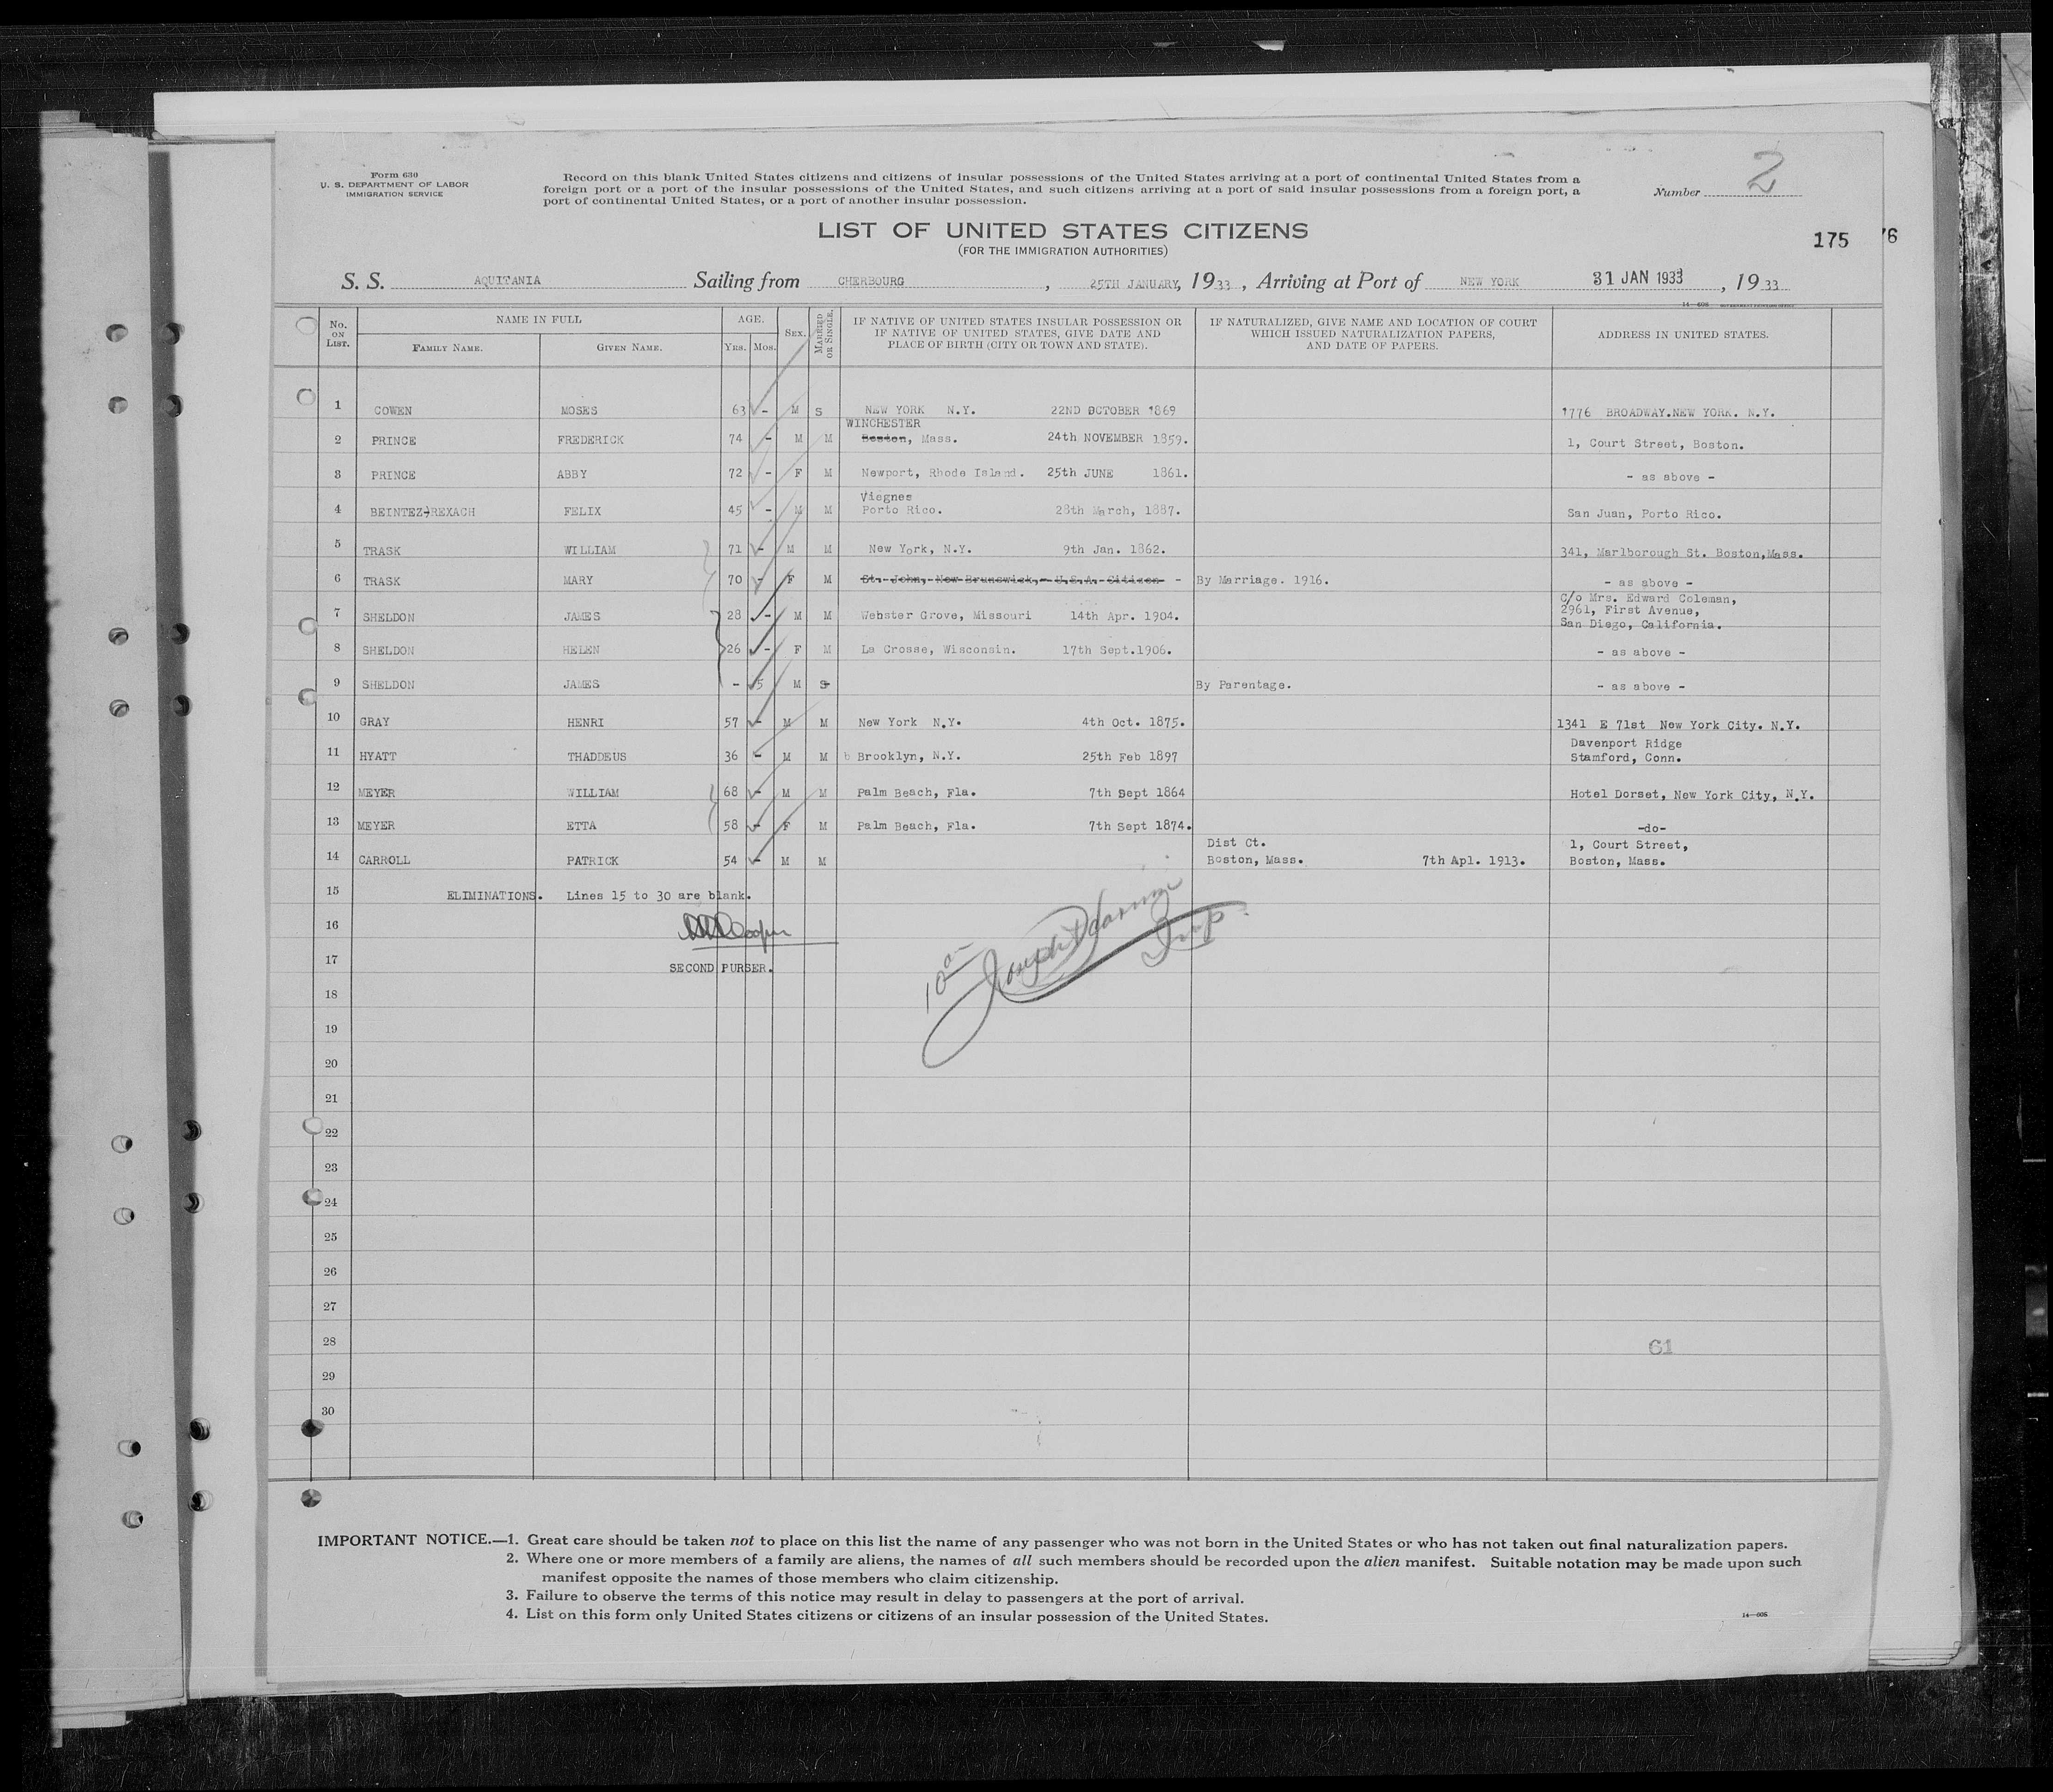 Form 630
U. S. DEPARTMENT OF LABOR
IMMIGRATION SERVICE
Record on this blank United States citizens and citizens of insular possessions of the United States arriving at a port of continental United States from a
foreign port or a port of the insular possessions of the United States, and such citizens arriving at a port of said insular possessions from a foreign port, a
port of continental United States, or a port of another insular possession.
Number 2
LIST OF UNITED STATES CITIZENS
(FOR THE IMMIGRATION AUTHORITIES)
175 76
S. S. AQUITANIA Sailing from CHERBOURG , 25TH JANUARY, 1933, Arriving at Port of NEW YORK 31 JAN 1933 , 1933
14—608
No. ON LIST. NAME IN FULL AGE. SEX. MARRIED OR SINGLE. IF NATIVE OF UNITED STATES INSULAR POSSESSION OR IF NATIVE OF UNITED STATES, GIVE DATE AND PLACE OF BIRTH (CITY OR TOWN AND STATE). IF NATURALIZED, GIVE NAME AND LOCATION OF COURT WHICH ISSUED NATURALIZATION PAPERS, AND DATE OF PAPERS. ADDRESS IN UNITED STATES.
FAMILY NAME. GIVEN NAME. YRS. MOS.
1 COWEN MOSES 63 - M S NEW YORK N.Y. 22ND OCTOBER 1869 1776 BROADWAY.NEW YORK. N.Y.
WINCHESTER
2 PRINCE FREDERICK 74 - M M Boston, Mass. 24th NOVEMBER 1859. 1, Court Street, Boston.
3 PRINCE ABBY 72 - F M Newport, Rhode Island. 25th JUNE 1861. - as above -
Viegnes
4 BEINTEZ-REXACH FELIX 45 - M M Porto Rico. 28th March, 1887. San Juan, Porto Rico.
5 TRASK WILLIAM 71 - M M New York, N.Y. 9th Jan. 1862. 341, Marlborough St. Boston,Mass.
6 TRASK MARY 70 - F M St. John, New Brunswick,- U.S.A. Citizen - By Marriage. 1916. - as above -
c/o Mrs. Edward Coleman,
7 SHELDON JAMES 28 - M M Webster Grove, Missouri 14th Apr. 1904. 2961, First Avenue,
San Diego, California.
8 SHELDON HELEN 26 - F M La Crosse, Wisconsin. 17th Sept.1906. - as above -
9 SHELDON JAMES - 5 M S By Parentage. - as above -
10 GRAY HENRI 57 - M M New York N.Y. 4th Oct. 1875. 1341 E 71st New York City. N.Y.
Davenport Ridge
11 HYATT THADDEUS 36 - M M b Brooklyn, N.Y. 25th Feb 1897 Stamford, Conn.
12 MEYER WILLIAM 68 - M M Palm Beach, Fla. 7th Sept 1864 Hotel Dorset, New York City, N.Y.
13 MEYER ETTA 58 - F M Palm Beach, Fla. 7th Sept 1874. -do-
Dist Ct. 1, Court Street,
14 CARROLL PATRICK 54 - M M Boston, Mass. 7th Apl. 1913. Boston, Mass.
15 ELIMINATIONS. Lines 15 to 30 are blank.
16 Cooper
17 SECOND PURSER.
18
19
20
21
22
23
24
25
26
27
28 61
29
30
IMPORTANT NOTICE.—1. Great care should be taken not to place on this list the name of any passenger who was not born in the United States or who has not taken out final naturalization papers.
2. Where one or more members of a family are aliens, the names of all such members should be recorded upon the alien manifest. Suitable notation may be made upon such
manifest opposite the names of those members who claim citizenship.
3. Failure to observe the terms of this notice may result in delay to passengers at the port of arrival.
4. List on this form only United States citizens or citizens of an insular possession of the United States.
14—608